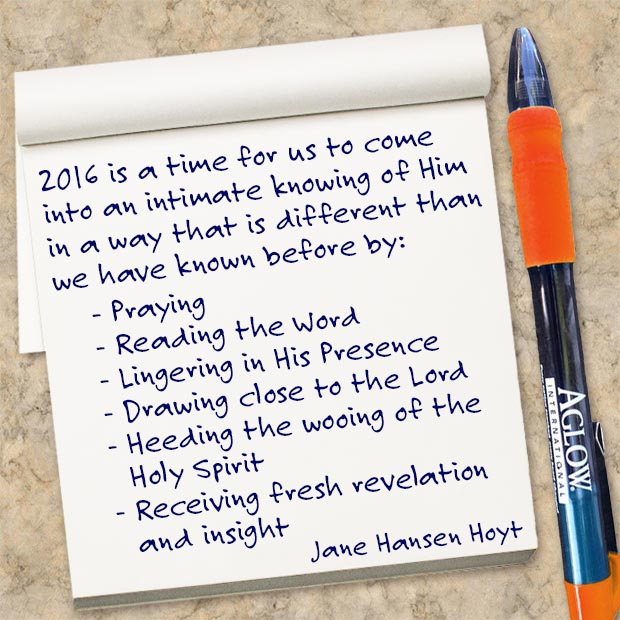 2016 is a time for us to come
into an intimate knowing of Him
in a way that is different than
we have known before by:
- Praying
- Reading the Word
- Lingering in His Presence
- Drawing close to the Lord
- Heeding the wooing of the
Holy Spirit
- Receiving fresh revelation
and insight
Jane Hansen Hoyt
AGLOW.
INTERNATIONAL